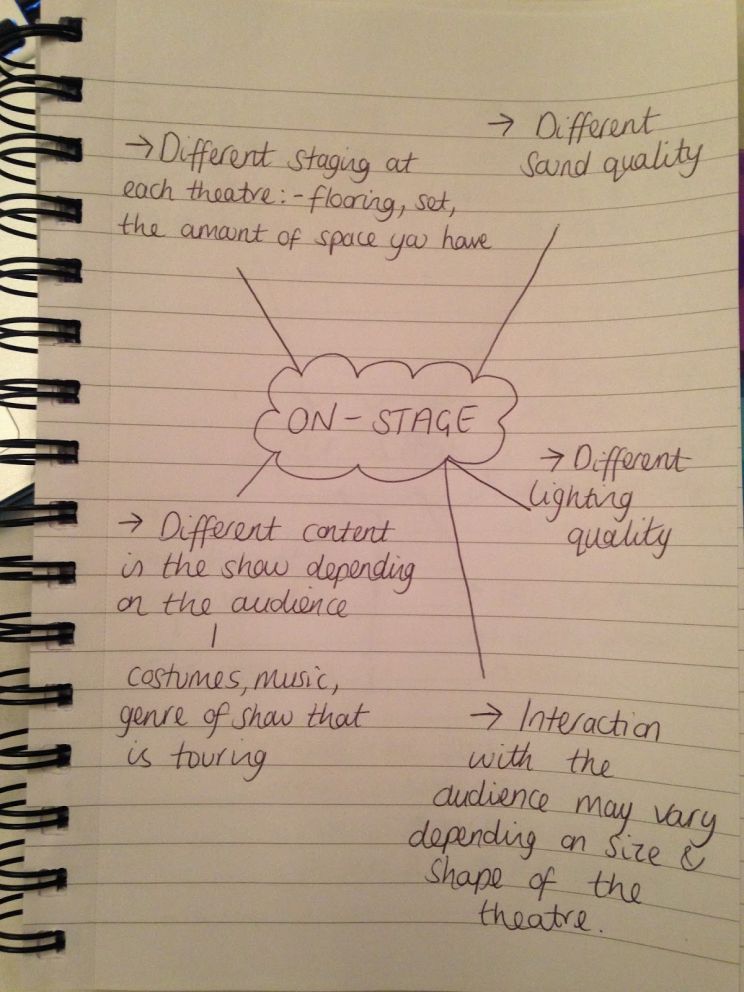 → Different staging at
each theatre:- flooring, set,
the amount of space you have
→ Different
sound quality
ON-STAGE
→ Different
lighting
quality
→ Different content
in the show depending
on the audience
costumes, music,
genre of show that
is touring
→ Interaction
with the
audience may vary
depending on size &
shape of the
theatre.